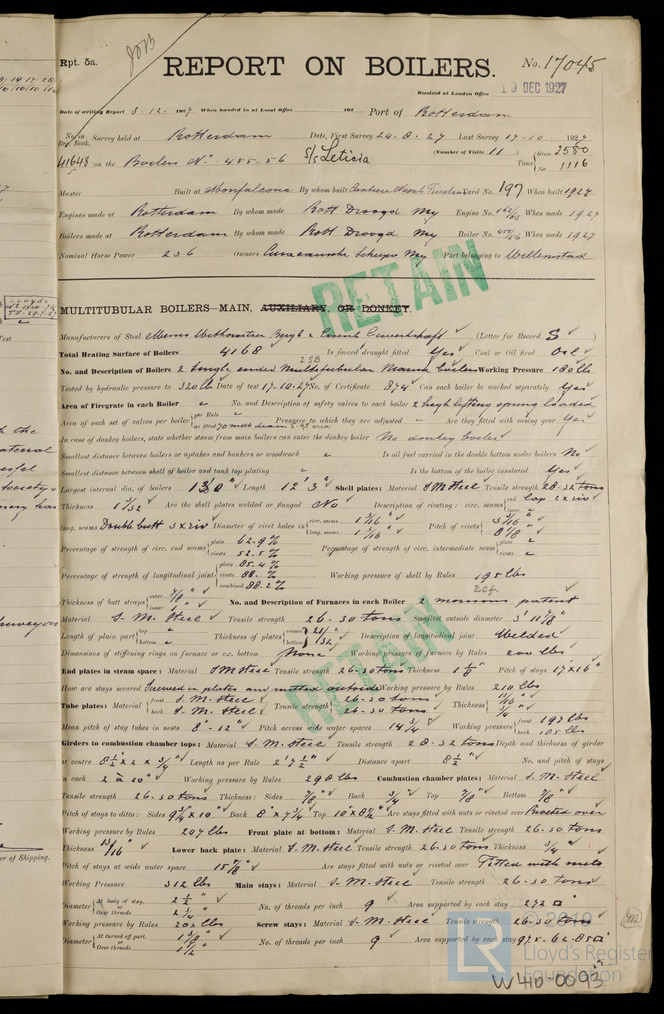 Rpt. 5a.
REPORT ON BOILERS.
No. 17045
Received at London Office 19 DEC 1927
Date of writing Report 3.12.1927 When handed in at Local Office 192 Port of Rotterdam
No. in Reg. Book. Survey held at Rotterdam Date, First Survey 24.8.27 Last Survey 17-10-1927
41648 on the Boilers No 455-56 S/S Leticia (Number of Visits 11) Tons Gross 2580 Net 1116
Master Built at Monfalcone By whom built Yard No. 197 When built 1927
Engines made at Rotterdam By whom made Rott Droogd My Engine No. When made 1927
Boilers made at Rotterdam By whom made Rott Droogd My Boiler No. 455/56 When made 1927
Nominal Horse Power 236 Owners Curacaosche Scheepv My Port belonging to Willemstad
RETAIN
MULTITUBULAR BOILERS—MAIN, AUXILIARY, OR DONKEY.
Manufacturers of Steel (Letter for Record S)
Total Heating Surface of Boilers 4168 Is forced draught fitted Yes Coal or Oil fired Oil
No. and Description of Boilers 2 Single ended Multitubular Marine boilers 2SB Working Pressure 180 lbs
Tested by hydraulic pressure to 320 lb Date of test 17-10-27 No. of Certificate 874 Can each boiler be worked separately Yes
Area of Firegrate in each Boiler No. and Description of safety valves to each boiler 2 high lifting spring loaded
Area of each set of valves per boiler per Rule as fitted Pressure to which they are adjusted Are they fitted with easing gear Yes
In case of donkey boilers, state whether steam from main boilers can enter the donkey boiler No donkey boiler
Smallest distance between boilers or uptakes and bunkers or woodwork Is oil fuel carried in the double bottom under boilers No
Smallest distance between shell of boiler and tank top plating Is the bottom of the boiler insulated Yes
Largest internal dia. of boilers Length 12' 3" Shell plates: Material S M Steel Tensile strength 28.32 tons
Thickness 1 3/32 Are the shell plates welded or flanged No Description of riveting: circ. seams end lap 2 x riv inter.
long. seams Double butt 3 x riv Diameter of rivet holes in circ. seams 1 3/16" long. seams 1 3/16" Pitch of rivets 3 9/16" 8 1/8"
Percentage of strength of circ. end seams plate 62.9% rivets 52.5% Percentage of strength of circ. intermediate seam plate rivets
Percentage of strength of longitudinal joint plate 85.4% rivets 88.% combined 88.2% Working pressure of shell by Rules 195 lbs
Thickness of butt straps outer 7/8" inner 1" No. and Description of Furnaces in each Boiler 2 morison patent 2 cf.
Material S. M. Steel Tensile strength 26-30 tons Smallest outside diameter 3' 11 7/8"
Length of plain part top bottom Thickness of plates crown bottom 21/32" Description of longitudinal joint Welded
Dimensions of stiffening rings on furnace or c.c. bottom None Working pressure of furnace by Rules 200 lbs
End plates in steam space: Material S M Steel Tensile strength 26-30 tons Thickness 1 1/8" Pitch of stays 17 x 16"
How are stays secured Screwed in plates and nutted outside Working pressure by Rules 210 lbs
Tube plates: Material front S. M. Steel back S. M. Steel Tensile strength 26-30 tons 26-30 tons Thickness
Mean pitch of stay tubes in nests 8"-12" Pitch across wide water spaces 14 3/4" Working pressure front 193 lbs back 185 lbs
Girders to combustion chamber tops: Material S. M. Steel Tensile strength 28-32 tons Depth and thickness of girder
at centre 8 1/2 x 2 x 3/4" Length as per Rule 2' 7 1/2" Distance apart 8 1/2" No. and pitch of stays
in each 2 à 10" Working pressure by Rules 298 lbs Combustion chamber plates: Material S. M. Steel
Tensile strength 26-30 tons Thickness: Sides 7/8" Back 3/4" Top 7/8" Bottom 7/8"
Pitch of stays to ditto: Sides 9 3/4 x 10" Back 8" x 7 3/4" Top 10" x 8 1/2" Are stays fitted with nuts or riveted over Riveted over
Working pressure by Rules 207 lbs Front plate at bottom: Material S. M. Steel Tensile strength 26-30 tons
Thickness 13/16" Lower back plate: Material S. M. Steel Tensile strength 26-30 tons Thickness 3/4"
Pitch of stays at wide water space 15 7/8" Are stays fitted with nuts or riveted over Fitted with nuts
Working Pressure 312 lbs Main stays: Material S. M. Steel Tensile strength 26-30 tons
Diameter At body of stay, or Over threads 2 1/2" 2 3/4" No. of threads per inch 9 Area supported by each stay 272 □"
Working pressure by Rules 203 lbs Screw stays: Material S. M. Steel Tensile strength 26-30 tons
Diameter At turned off part, or Over threads 1 3/8" 1 1/2" No. of threads per inch 9 Area supported by each stay 97.5-62-85 □"
RETAIN
© 2019
LR Lloyd's Register Foundation
W410-0093